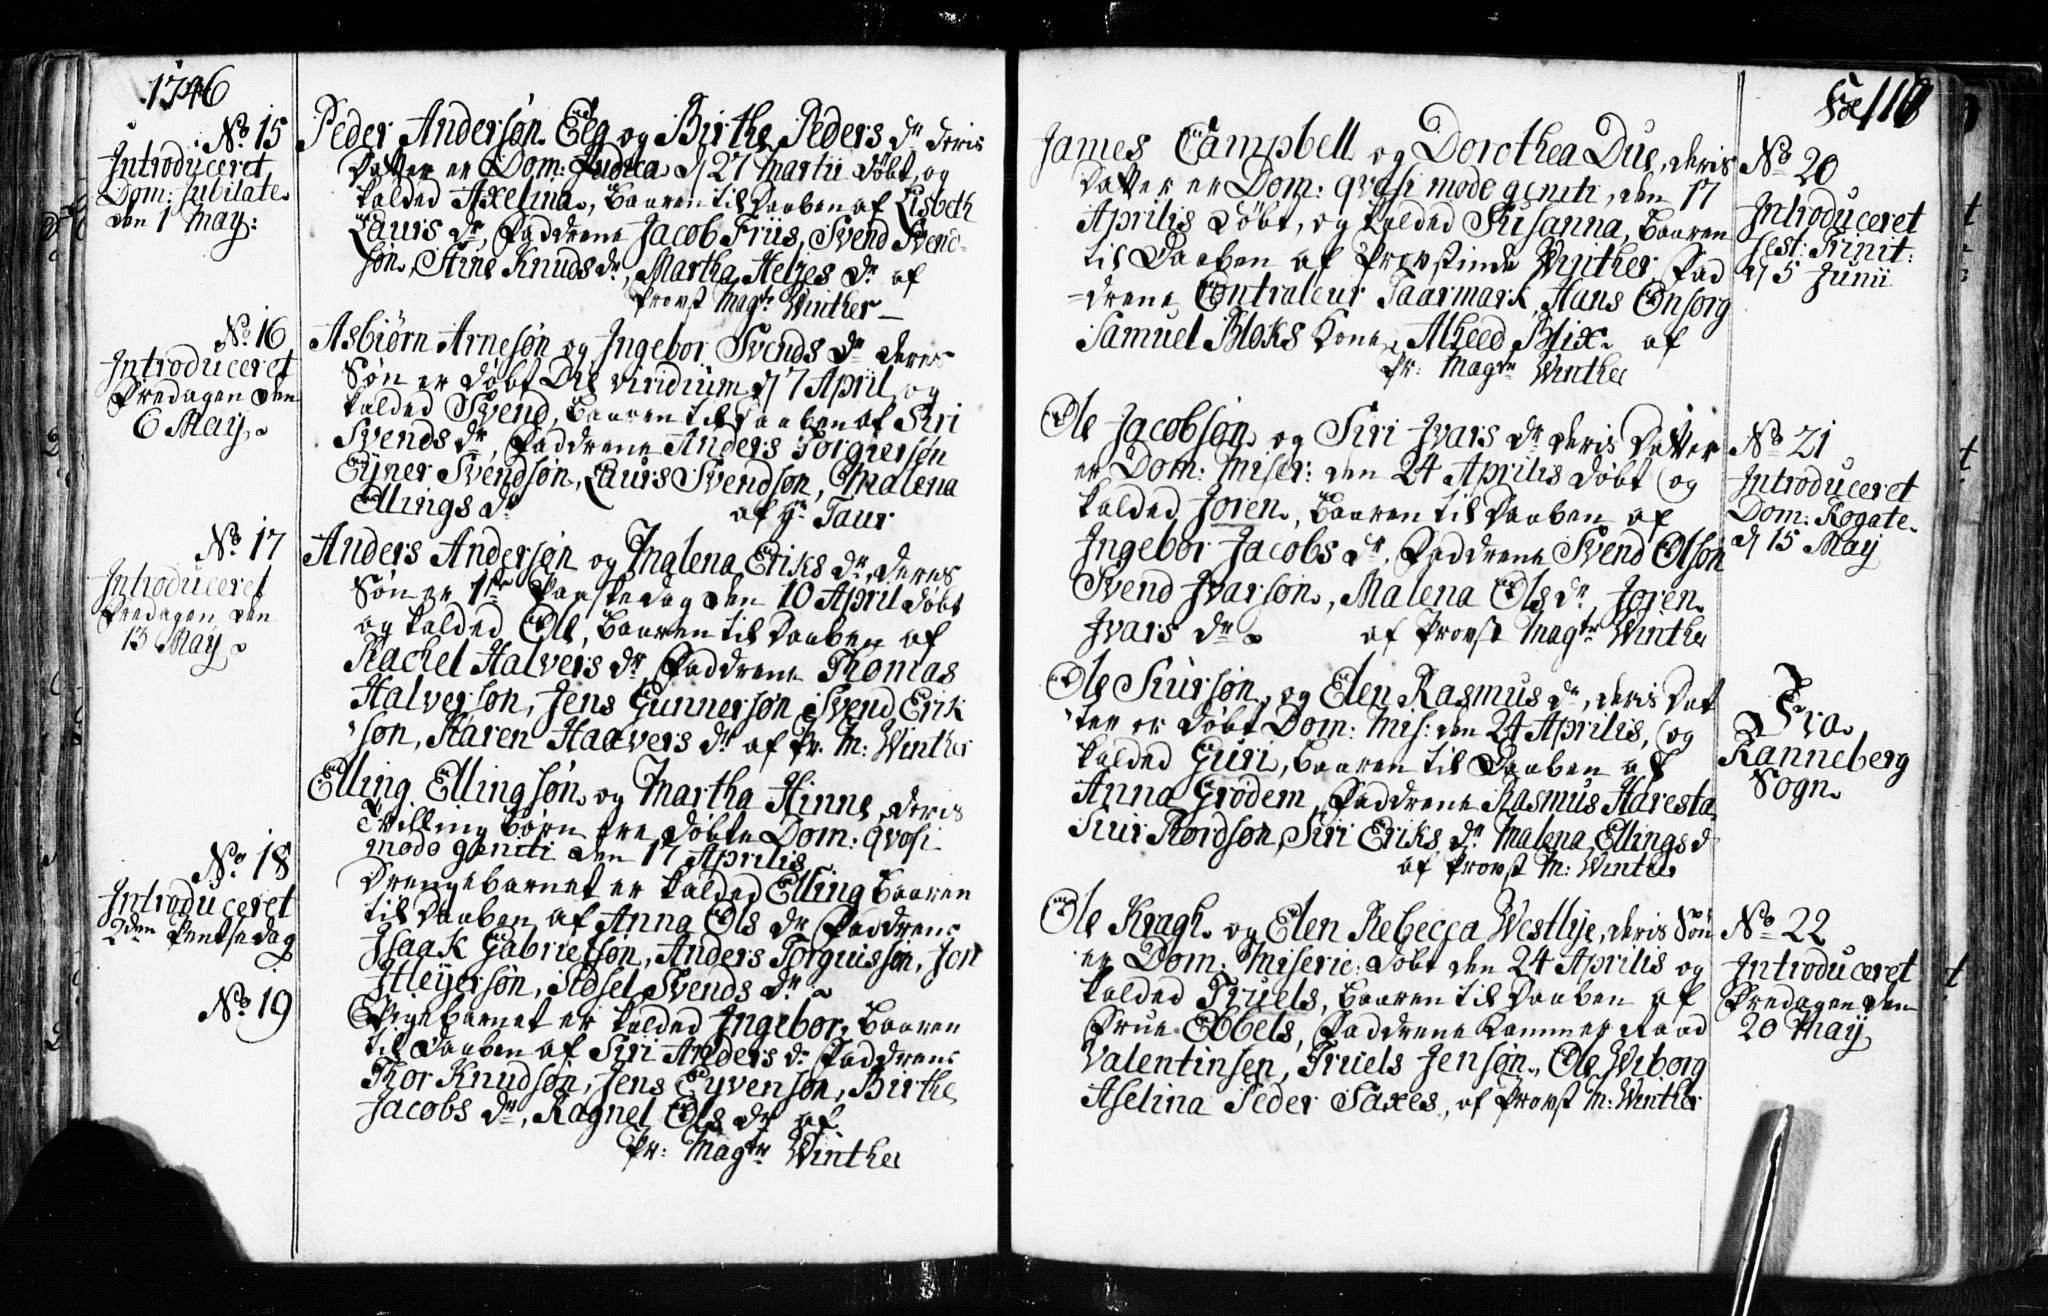 1746
No 15
Introduceret
Dom: Jubilate
den 1 May:
Peder Andersøn Eeg og Birthe Peders dr deris
Datter er Dom: Judica d 27 Martii døbt, og
kalded Axelina, baaren til Daaben af Lisbeth
Laurs dr, Faddrene Jacob Friis, Svend Svend-
søn, Stine Knuds dr, Martha Heljes dr af
Provst Magr Winther
No 16
Introduceret
Fredagen den
6 May
Asbiørn Arnesøn og Ingebor Svends dr deres
Søn er døbt Die viridium d 7 April og
kalded Svend, baaren til Daaben af Siri
Svends dr, Faddrene Anders Torgiersøn
Ejner Svendsøn, Laurs Svendsøn, Malena
Ellings dr af Hr Taur
No 17
Introduceret
Fredagen den
13 May
Anders Andersøn og Malena Eriks dr, deres
Søn er 1ste Paaskedag den 10 April døbt
og kalded Ole, baaren til Daaben af
Rachel Halvers dr, Faddrene Thomas
Halversøn, Jens Gunnersøn Svend Erik
søn, Karen Haavers dr af Pr. M: Winther
No 18
Introduceret
2den Pentsedag
Elling Ellingsøn og Martha Hinne, deris
Tvilling børn ere døbte Dom: qvasi
modo geniti den 17 Aprilis
Drengebarnet er kalded Elling baaren
til Daaben af Anna Ols dr Faddrene
Isaak Gabrielsøn, Anders Torguissøn, Jon
Itlejersøn, Sidsel Svends dr
No 19
Pigebarnet er kalded Ingebor, baaren
til Daaben af Siri Anders dr Faddrene
Thor Knudsøn, Jens Eyvensøn, Birthe
Jacobs dr, Ragnel Ols dr af
Pr: Magtr Winther
110
James Campbell og Dorothea Due, deris
Datter er Dom: qvasi mode geniti, den 17
Aprilis døbt, og kalded Susanna, baaren
til Daaben af Provstinde Winther, Fad
=drene Contraleur Taarmark, Hans Onsorg
Samuel Bloks Kone, Alheed Blix af
Pr: Magtr Winther
No 20
Introduceret
fest: Trinit:
d 5 Junii
Ole Jacobsøn og Siri Ivars dr deris Datter
er Dom: Miser: den 24 Aprilis døbt og
kalded Joren, baaren til Daaben af
Ingebor Jacobs dr, Faddrene Svend Olsøn
Svend Ivarsøn, Malena Ols dr, Joren
Ivars dr af Provst Magtr Winther
No 21
Introduceret
Dom: Rogate
d 15 Maij
Ole Siursøn, og Elen Rasmus dr, deris Dat
ter er døbt Dom: Mis: den 24 Aprilis, og
kalded Guri, baaren til Daaben af
Anna Grødem, Faddrene Rasmus Haresta
Siur Thordsøn, Siri Eriks dr Malena Ellings d
af Provst M: Winther
Fra
Ranneberg
Sogn
Ole Kragh og Elen Rebecca Westlye, deris Søn
er Dom: Miserie: døbt den 24 Aprilis og
kalded Truels, baaren til Daaben af
Frue Ebbels, Faddrene Kammer Raad
Valentinsen, Truels Jensøn, Ole Wiborg
Aselina Peder Saxes, af Provst M: Winther
No 22
Introduceret
Fredagen den
20 Maij